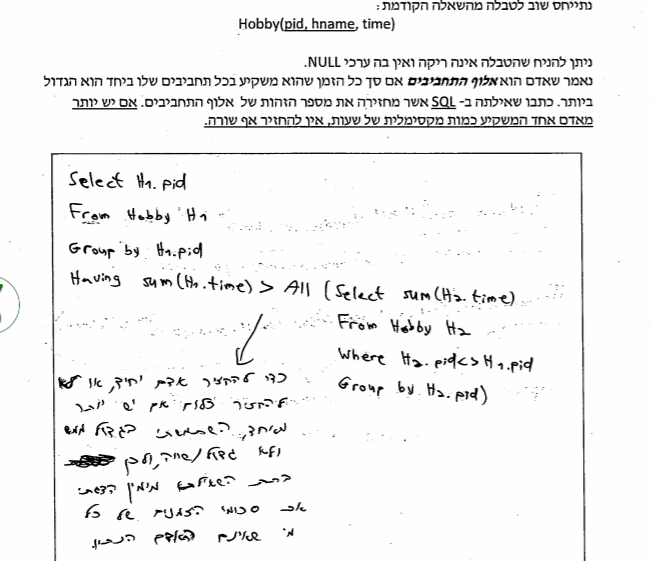 נתייחס שוב לטבלה מהשאלה הקודמת :
Hobby(pid, hname, time)
ניתן להניח שהטבלה אינה ריקה ואין בה ערכי NULL.
נאמר שאדם הוא אלוף התחביבים אם סך כל הזמן שהוא משקיע בכל תחביבים שלו ביחד הוא הגדול
ביותר. כתבו שאילתה ב- SQL אשר מחזירה את מספר הזהות של אלוף התחביבים. אם יש יותר
מאדם אחד המשקיע כמות מקסימלית של שעות, אין להחזיר אף שורה.
Select H1.pid
From Hobby H1
Group by H1.pid
Having sum(H1.time) > All (Select sum(H2.time)
From Hobby H2
Where H2.pid<>H1.pid
Group by H2.pid)
כדי להחזיר אדם יחיד, או לא
להחזיר כלום אם יש יותר
מאחד, השתמשתי בגדול ממש
ולא גדול/שווה, ולכן
בתת השאילתא מימין הצגתי
את סכומי הזמנים של כל
מי שאינם האדם הנתון.